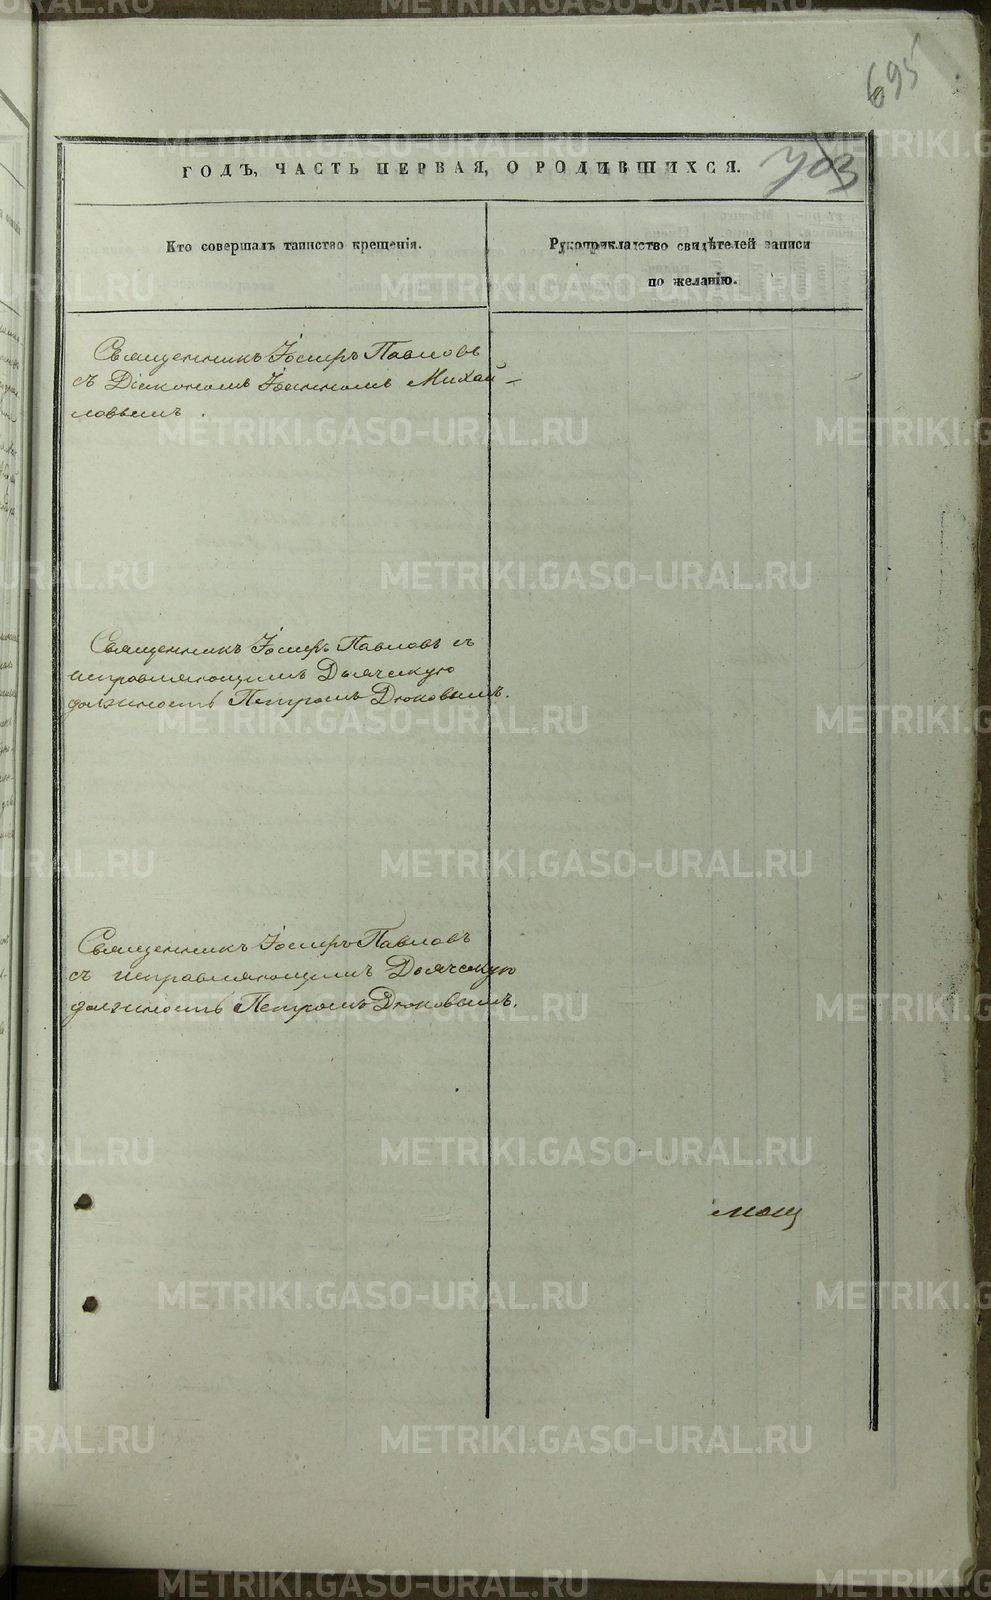 695
703
ГОДЪ, ЧАСТЬ ПЕРВАЯ, О РОДИВШИХСЯ.
Кто совершалъ таинство крещенія.
Рукоприкладство свидѣтелей записи
по желанію.
Священникъ Іосифъ Павловъ
съ Діакономъ Іоанномъ Михай-
ловымъ.
Священникъ Іосифъ Павловъ съ
исправляющимъ Дьяческую
должность Петромъ Дюковымъ.
Священникъ Іосифъ Павловъ
съ исправляющимъ Дьяческую
должность Петромъ Дюковымъ.
METRIKI.GASO-URAL.RU